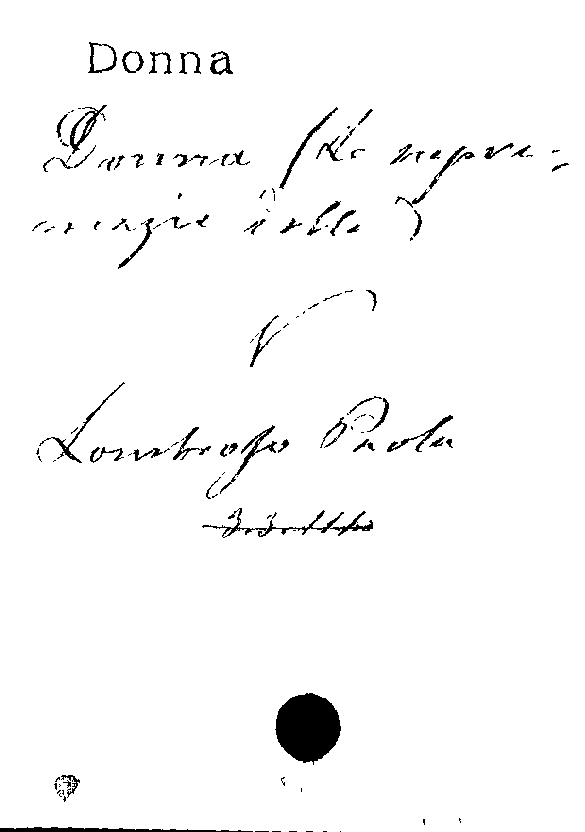 Donna
Donna (La supre-
mazia della)
V
Lombroso Paola